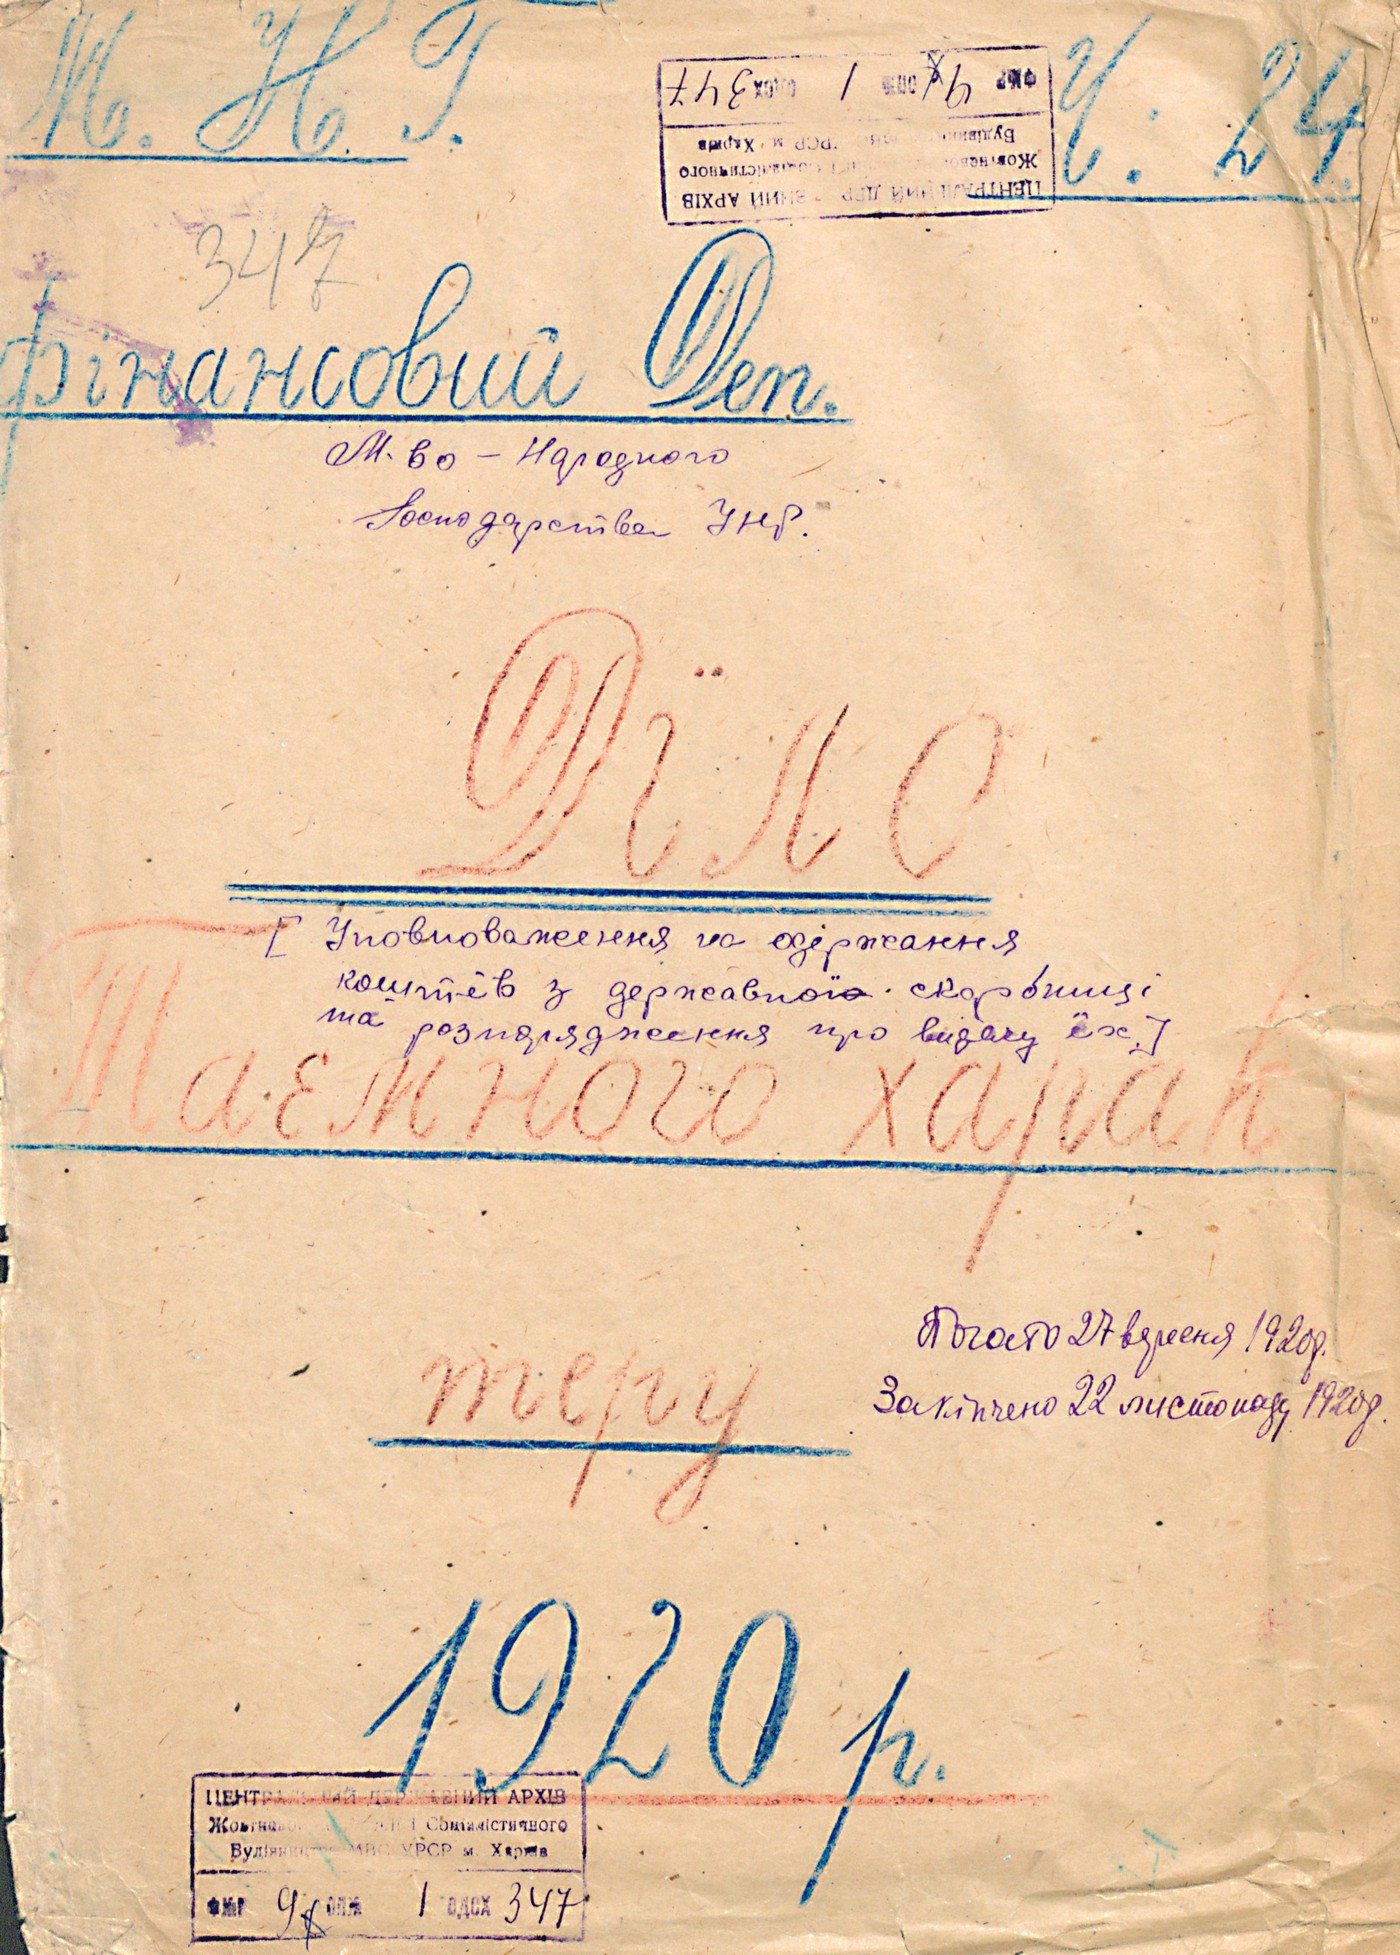 М. Н. Г.
Ч. 24.
ЦЕНТРАЛЬНИЙ ДЕРЖАВНИЙ АРХІВ
Жовтневої Революції і Соціалістичного
Будівництва УРСР м. Харків
Ф№Р 9 ОП№ 1 ОДОХ 347
347
Фінансовий Деп.
М-во – Народного
Господарства УНР.
Дїло
[ Уповноваження на одержання
коштів з державної скарбниці
та розпорядження про видачу їх.]
Таємного харак
теру
Почато 27 вересня 1920р.
Закінчено 22 листопаду 1920р.
1920 р.
ЦЕНТРАЛЬНИЙ ДЕРЖАВНИЙ АРХІВ
Жовтневої Революції і Соціалістичного
Будівництва МВС УРСР м. Харків
Ф№Р 9 ОП№ 1 ОДОХ 347